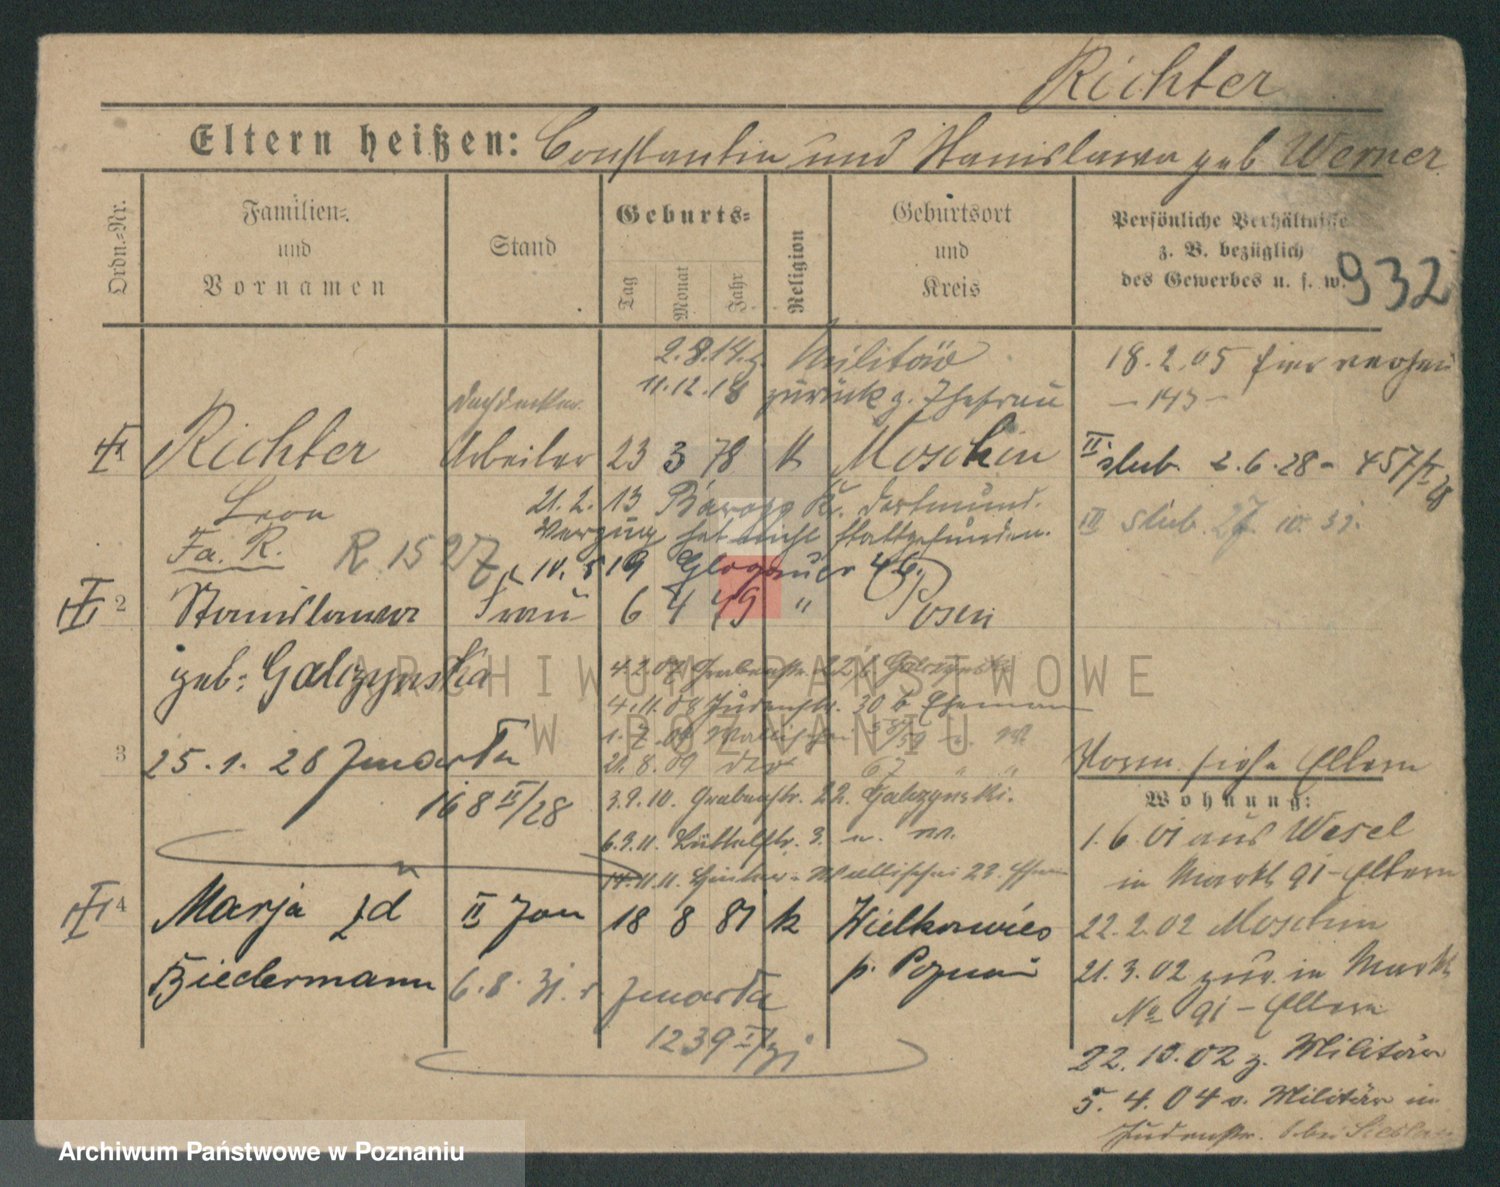 Richter
Eltern heißen: Constantin und Stanislawa geb Werner
Ordn.-Nr.
Familien-
und
Vornamen
Stand
Geburts-
Tag
Monat
Jahr
Religion
Geburtsort
und
Kreis
Persönliche Verhältnisse
z. B. bezüglich
des Gewerbes u. s. w.
932
2.8.14. z. Militär
11.12.18 zurück z. Ehefrau
18.2.05 hier
- 143 -
Dachdecker
Richter Arbeiter 23 3 78 k Moschin
II slub. 2.6.28 - 457/II 28
Leon
21.2.13 K. Dortmund.
Verzug hat nicht stattgefunden.
III slub. 27.10.31.
Fa. R. R 1527
10. 5 19 Glogauer
2 Stanislawa Frau 6 4 79 " Posen
geb: Galczynska
4.2.07 Grabenstr. 22 b Galczynski
4.11.08 Judenstr. 30 b. Ehemann
1.7.09 Wallischei 58/59 u. M
3 25.1.28 zmarła
21.8.09 67 " "
168 II/28
3.9.10. Grabenstr. 22. Galczynski.
6.9.11. Büttelstr. 3. u. M.
14.11.11. Hinter-Wallischei 22.
Vorm. siehe Eltern
Wohnung:
1.6.01 aus Wesel
in Markt 91 - Eltern
4 Marja II żona 18 8 81 k Wielkowies
22.2.02 Moschin
Biedermann 6.8.31. zmarła p. Poznań
21.3.02 zur. in Markt
No 91 - Eltern
1239 II/31
22.10.02 z. Militär
5.4.04 v. Militär in
Judenstr.
ARCHIWUM PAŃSTWOWE
W POZNANIU
Archiwum Państwowe w Poznaniu